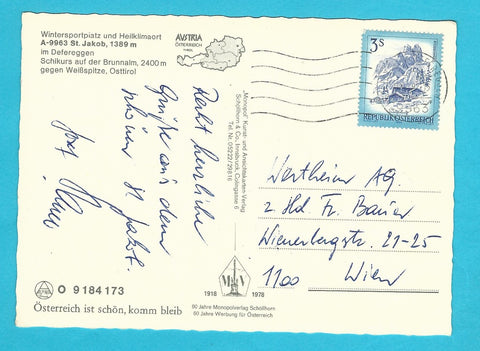 Wintersportplatz und Heilklimaort
A-9963 St. Jakob, 1389 m
im Defereggen
Schikurs auf der Brunnalm, 2400 m
gegen Weißspitze, Osttirol
AUSTRIA
ÖSTERREICH
TIROL
3S
REPUBLIK ÖSTERREICH
Recht herzliche
Grüße aus dem
schönen St. Jakob.
Josef
"Monopol" Kunst- und Ansichtskarten-Verlag
Schöllhorn & Co, Innsbruck, Colingasse 6
Tel. Nr. 05222/29816
Wertheim AG.
z. Hd. Fr. Bauer
Wienerbergstr. 21-25
1100 Wien
1918 1978
60 Jahre Monopolverlag Schöllhorn
60 Jahre Werbung für Österreich
O 9184173
Österreich ist schön, komm bleib